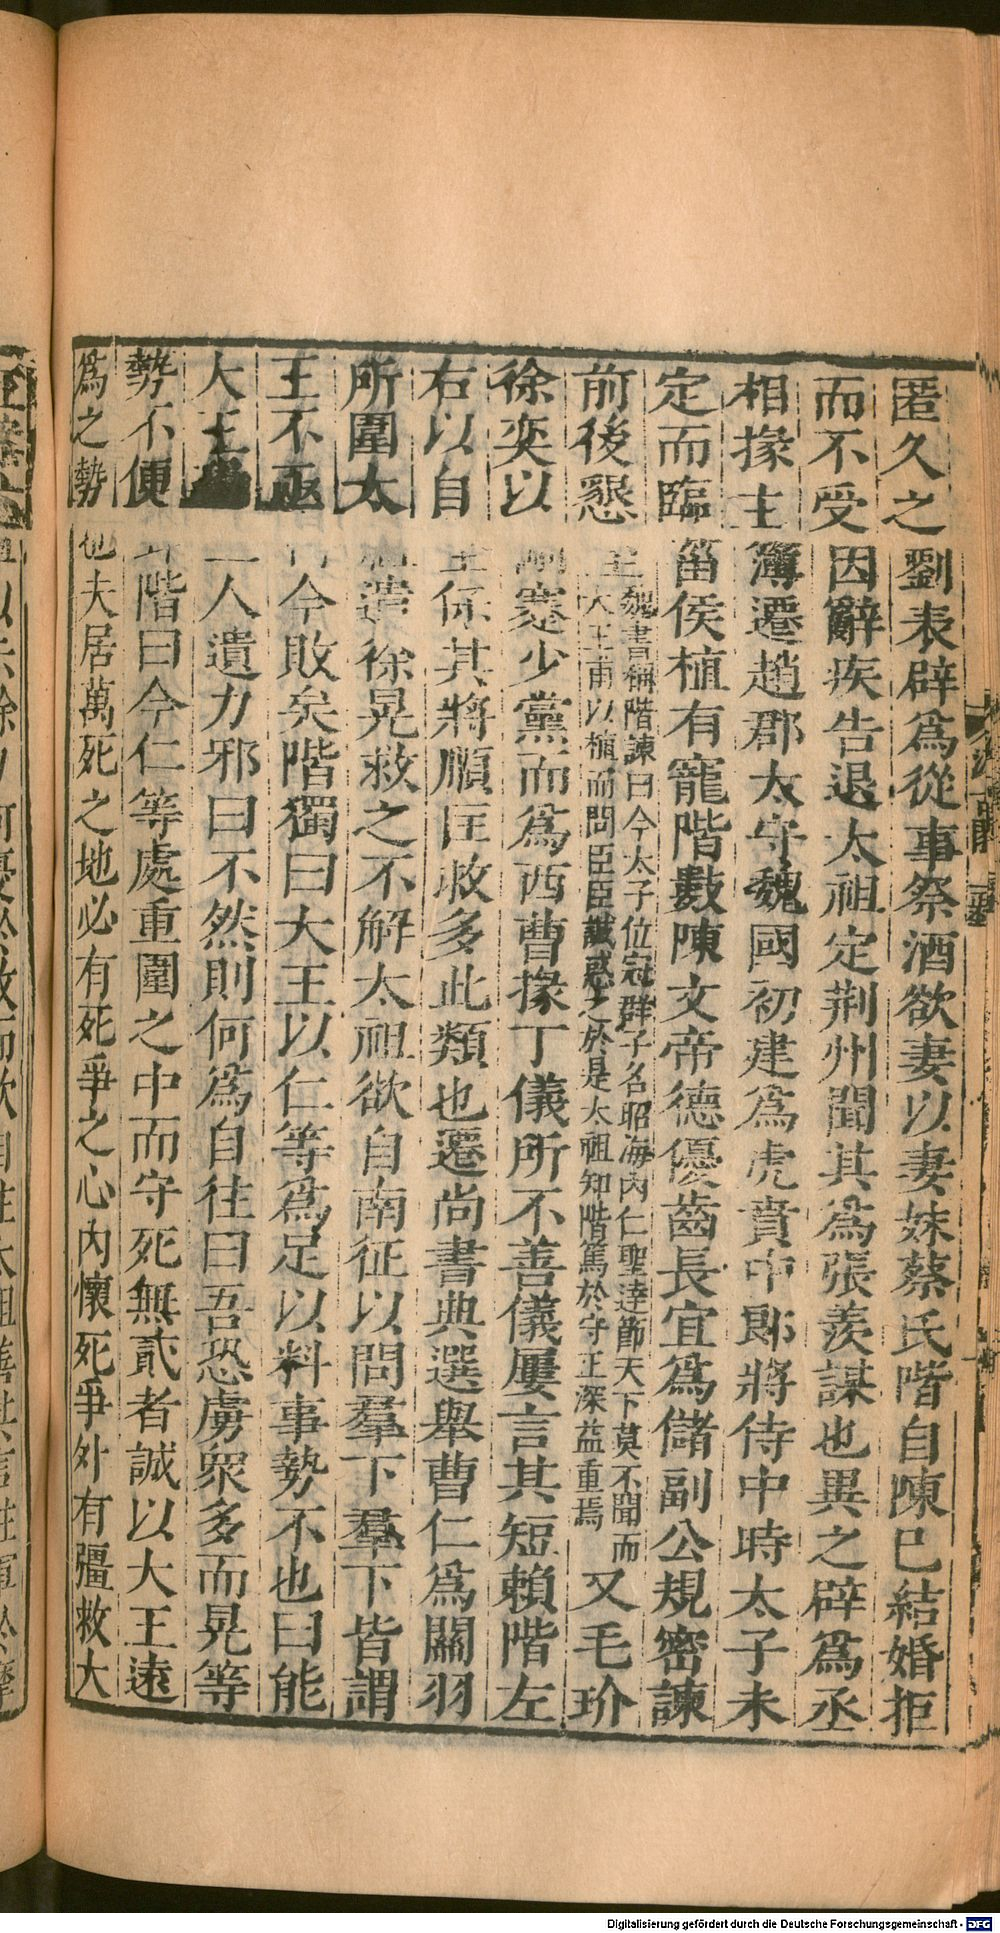 匿久之劉表辟爲從事祭酒欲妻以妻妹蔡氏階自陳已結婚拒
而不受因辭疾告退太祖定荆州聞其爲張羨謀也異之辟爲丞
相掾主簿遷趙郡太守魏國初建爲虎賁中郎將侍中時太子未
定而臨菑侯植有寵階數陳文帝德優齒長宜爲儲副公規密諫
前後懇
魏書稱階諫曰今太子位冠群子名昭海内仁聖達節天下莫不聞而
大王甫以植而問臣臣誠惑之於是太祖知階篤於守正深益重焉
又毛玠
徐奕以剛蹇少黨而爲西曹掾丁儀所不善儀屢言其短賴階左
右以自全其將順匡救多此類也遷尚書典選舉曹仁爲關羽
所圍太祖遣徐晃救之不解太祖欲自南征以問羣下羣下皆謂
王不亟今敗矣階獨曰大王以仁等爲足以料事勢不也曰能
大王二人遺力邪曰不然則何爲自往曰吾恐虜衆多而晃等
勢不便階曰今仁等處重圍之中而守死無貳者誠以大王遠
爲之勢也夫居萬死之地必有死爭之心内懷死爭外有彊救大
Digitalisierung gefördert durch die Deutsche Forschungsgemeinschaft - DFG